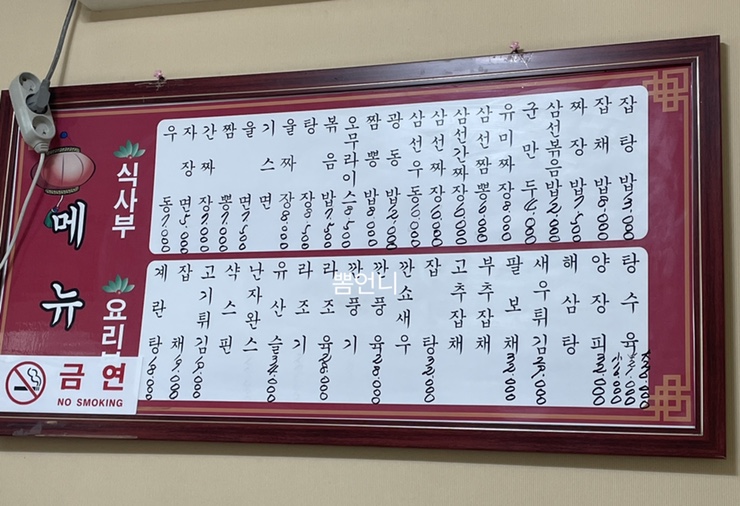 메뉴
식사부
우동 7,000
자장면
간짜장 7,000
짬뽕 7,000
울면 7,500
기스면
울짜장 8,000
탕장 8,500
볶음밥 7,500
오무라이스 8,500
짬뽕밥 8,000
광동밥
삼선우동
삼선짜장
삼선간짜장
삼선짬뽕
유미짜장 8,000
군만두
삼선볶음밥
짜장밥 7,500
잡채밥 8,000
잡탕밥
요리
계란탕 8,000
잡채
고기튀김
샥스핀
난자완스
유산슬 34,000
라조기
라조육 28,000
깐풍기
깐풍육 28,000
깐쇼새우
잡탕 32,000
고추잡채
부추잡채
팔보채 32,000
새우튀김
해삼탕
양장피 32,000
탕수육
금연
NO SMOKING
뽐언니